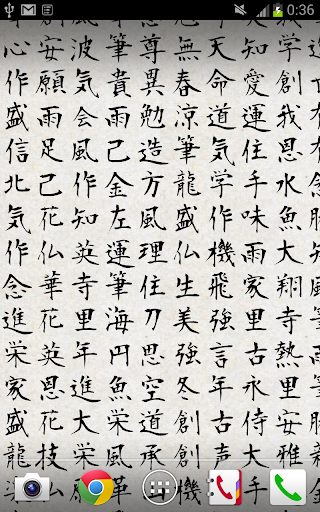 0:36
心安波筆尊無天知学
作願気貴異春命愛創
盛雨会雨勉涼道運我
信足風己造筆気住恩
北己作金方龍学手水
気花知左風盛作味魚
作仏英運理仏機雨大
念華寺筆住生飛家翔
進花里海刀美強里寺
栄英年円思強言古熱
家恩進魚空冬年永里
盛花大栄道創古侍安
龍技栄風承創大大雅